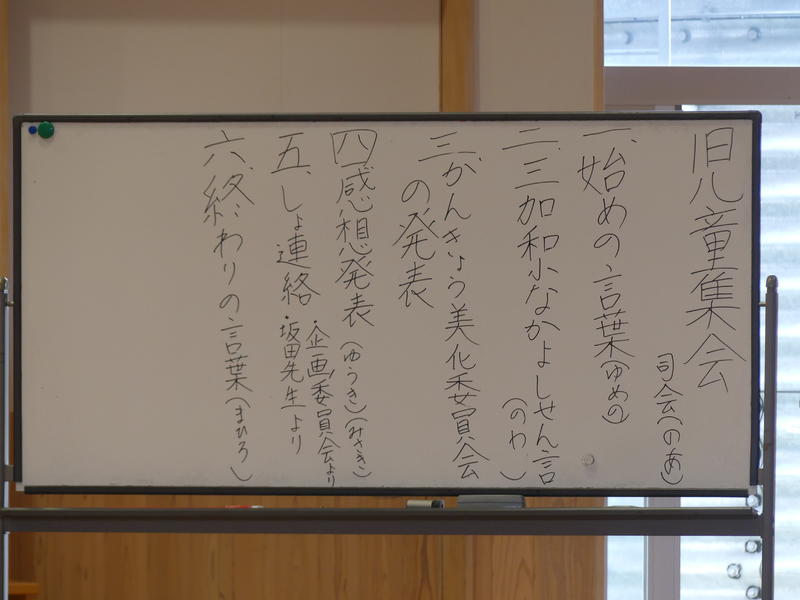 児童集会
司会(のあ)
一、始めの言葉(ゆめの)
二、三加和小なかよしせん言
(のわ)
三、かんきょう美化委員会
の発表
四感想発表(ゆうき)(みさき)
五、しょ連絡・企画委員会より
・坂田先生より
六、終わりの言葉(まひろ)